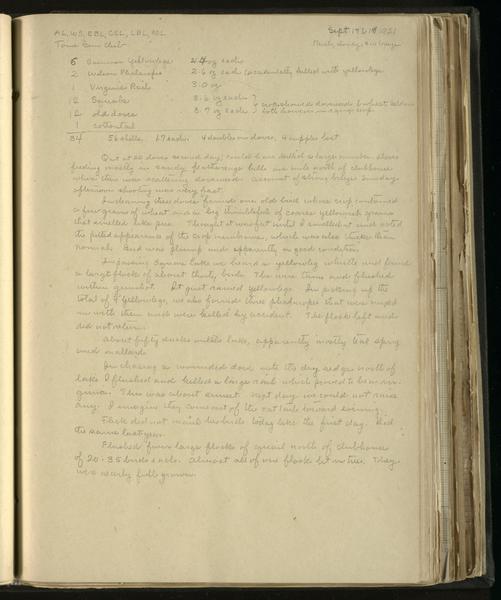 AL, WS, EBL, CSL, LBL, ACL Sept 17 & 18 1921
Tome Gun Club
6 Summer Yellowlegs oz each
2 Wilson Phalarope 2.6 oz each (accidentally killed with yellowlegs
1 Virginia Rail 3.0 oz
12 Squabs 3.6 oz each
12 old doves 3.9 oz each
1 cottontail
34 56 shells. 4 doubles on doves, 4 cripples lost
Out of 22 doves second day, could have killed a large number. Doves
feeding mostly in sandy hills one mile north of clubhouse
when they were scattering downwind. Account of strong breeze Sunday
afternoon shooting was very fast.
In cleaning these doves found one old bird whose crop contained
a few grains of wheat and a big thimbleful of coarse yellowish grains
that smelled like pus. Thought it was fat until I smelled it and noted
the pitted appearance of its crop membrane, which was also thicker than
normal. Bird was plump and apparently in good condition.
In passing Square Lake we heard a yellowleg whistle and found
a large flock of about thirty birds. The were tame and flushed
within gunshot. At first named yellowlegs. In picking up the
total of 4 Yellowlegs, we also found three phalaropes that were mixed
in with them and were killed by accident. The flock left and
did not return.
About fifty ducks on the lake, apparently mostly teal, spoon
and mallards.
In chasing a wounded dove into the dry sedge north of
lake I flushed and killed a large rail which proved to be a Vir-
ginia. This was about sunset. Next day we could not raise
any. I imagine they come out of the cat tails toward evening.
Flick did not mind the birds today like the first day. Did
the same last year.
Flushed four large flocks of quail north of clubhouse
of 20-35 birds each. Almost all of one flock lit in trees. They
were nearly full grown.